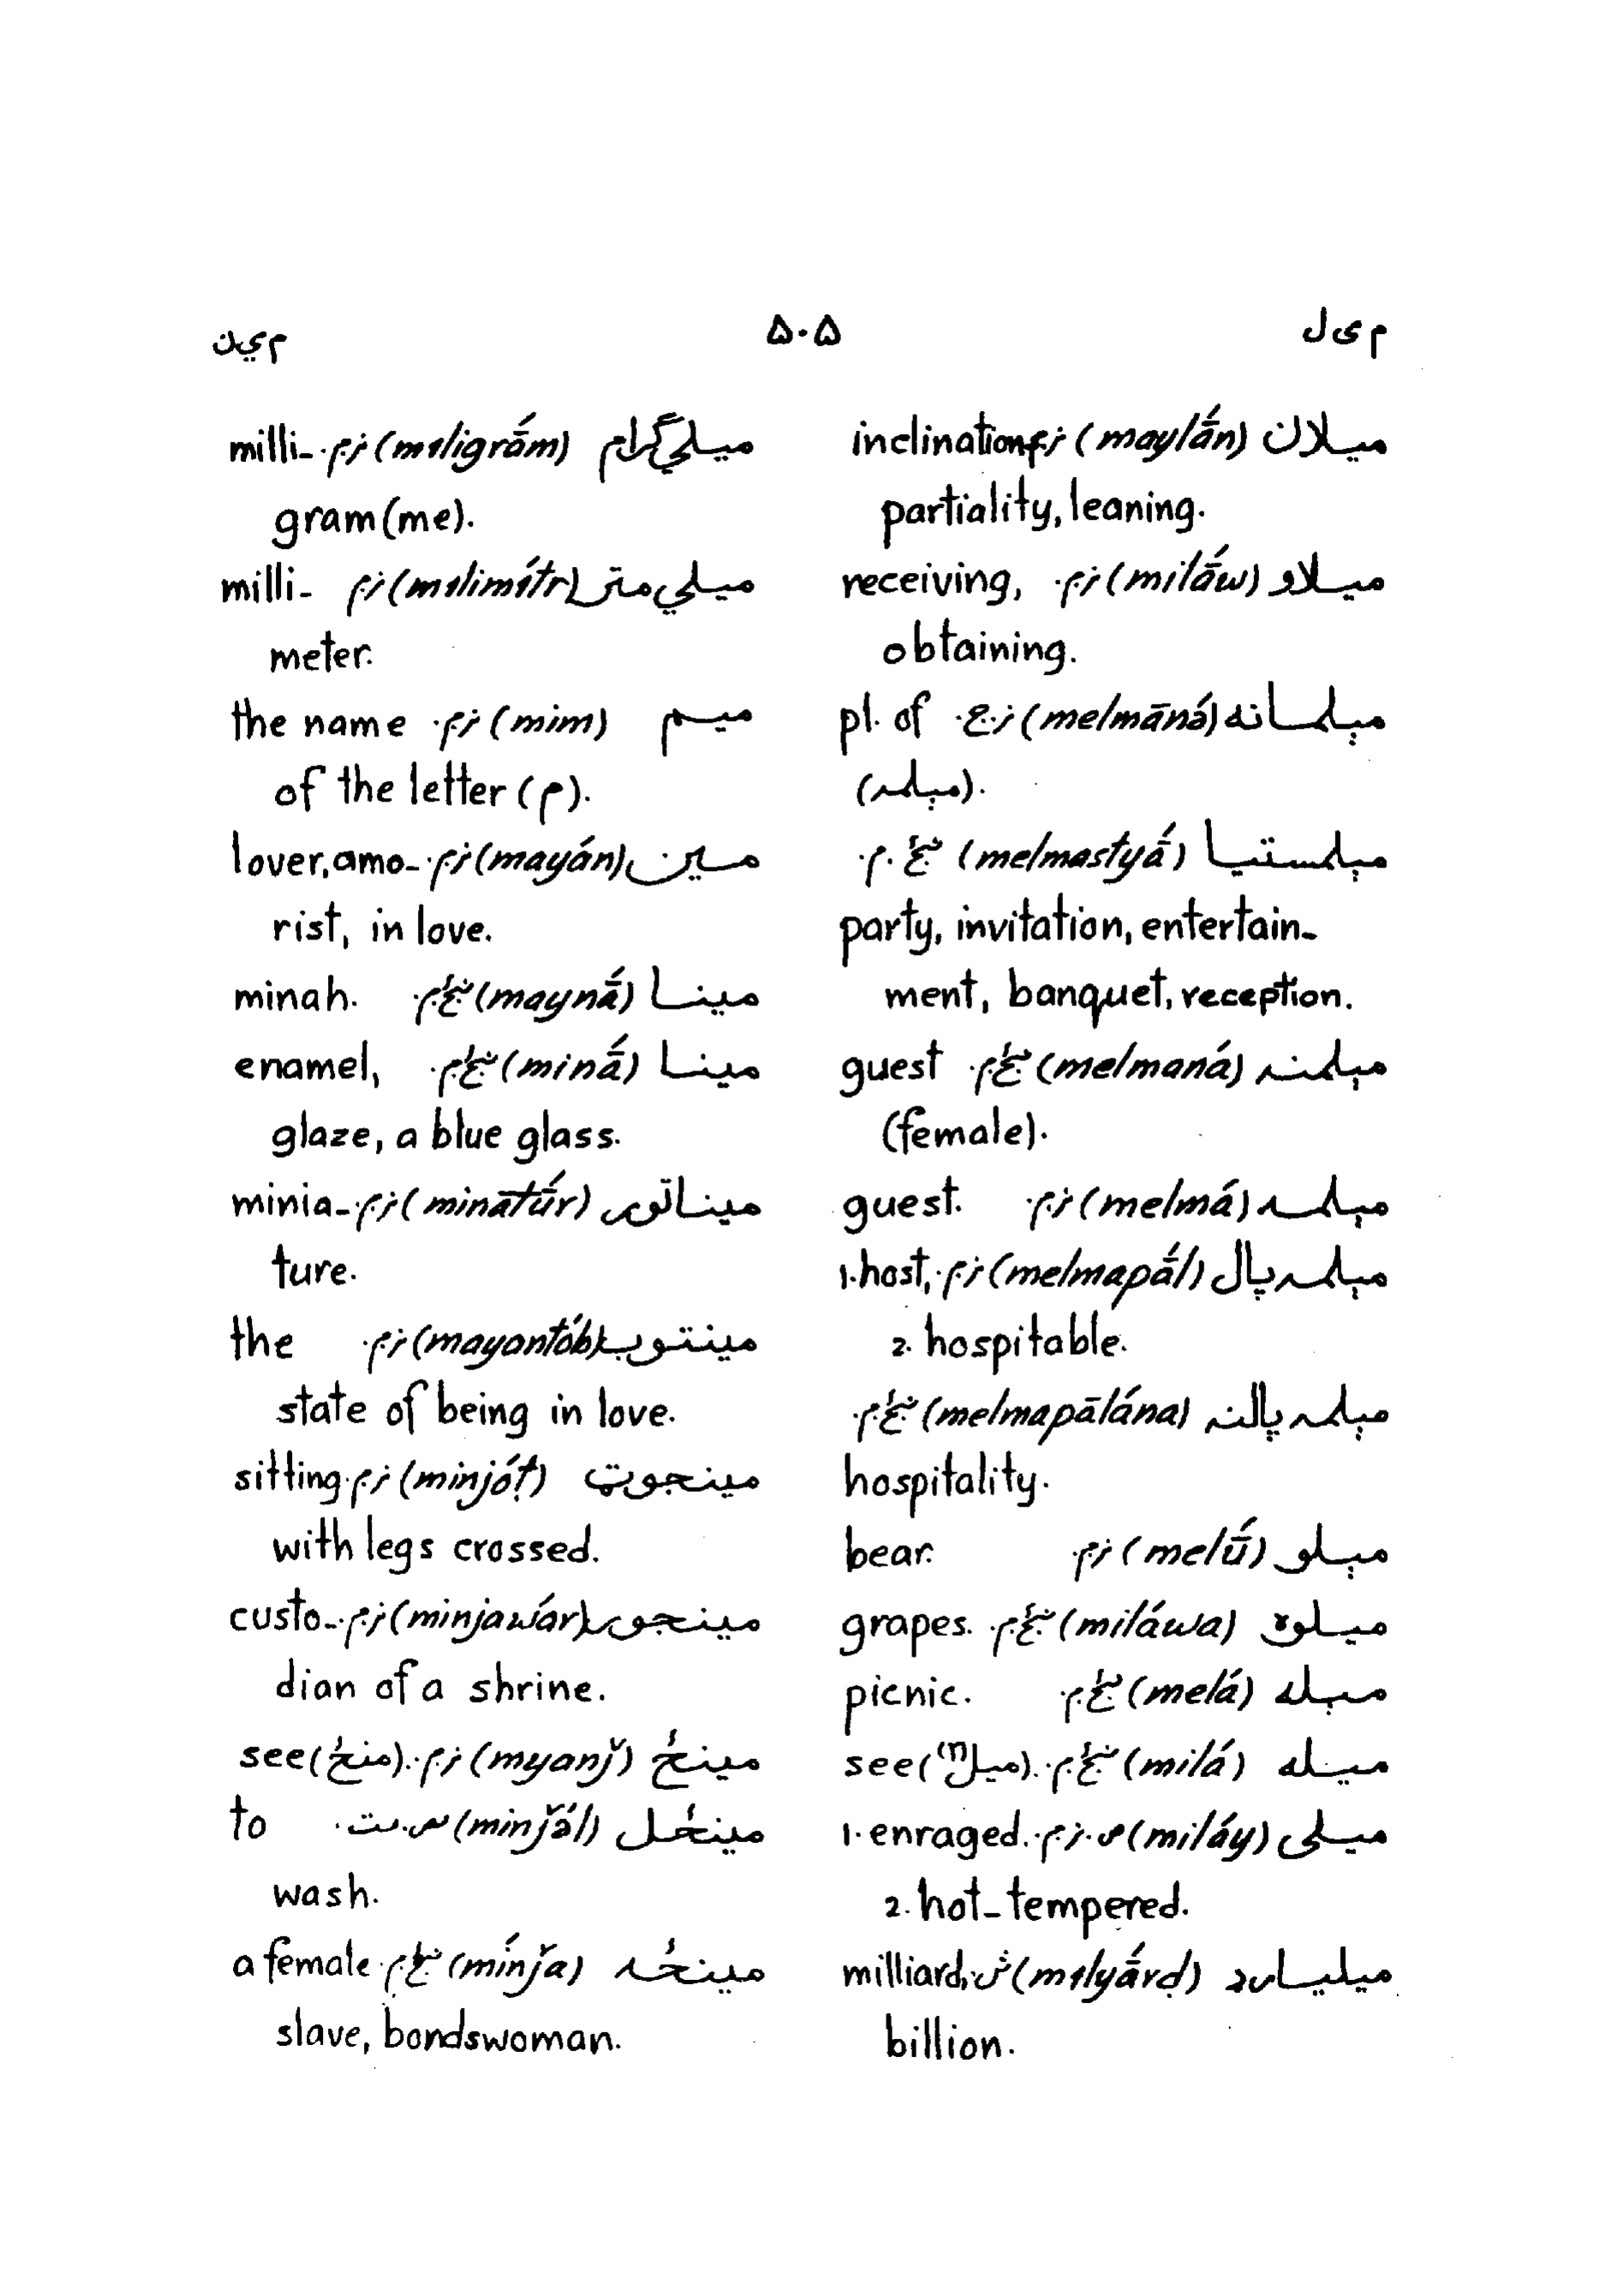 م ی ل
۵۰۵
م ي ن
ميلان (maylā́n) ن.م. inclination,
partiality, leaning.
ميلاو (milā́w) ن.م. receiving,
obtaining.
مېلمانه (melmāná) ن.ج. pl. of
(مېلمه).
مېلمستيا (melmastyā́) ښځ.م.
party, invitation, entertain-
ment, banquet, reception.
مېلمنه (melmaná) ښځ.م. guest
(female).
مېلمه (melmá) ن.م. guest.
مېلمه پال (melmapā́l) ن.م. 1. host,
2. hospitable.
مېلمه پالنه (melmapālána) ښځ.م.
hospitality.
مېلو (melū́) ن.م. bear.
ميلوه (miláwa) ښځ.م. grapes.
مېله (melá) ښځ.م. picnic.
ميله (milá) ښځ.م. see (ميل).
ميلی (miláy) ص.ن.م. 1. enraged.
2. hot-tempered.
ميليارډ (mɪlyā́rḍ) ش. milliard,
billion.
ميلي‌گرام (mɪligrā́m) ن.م. milli-
gram(me).
ميلي متر (mɪlimítr) ن.م. milli-
meter.
ميم (mim) ن.م. the name
of the letter (م).
مين (mayán) ن.م. lover, amo-
rist, in love.
مينا (maynā́) ښځ.م. minah.
مينا (minā́) ښځ.م. enamel,
glaze, a blue glass.
ميناتور (minātū́r) ن.م. minia-
ture.
مينتوب (mayantób) ن.م. the
state of being in love.
مينجوټ (minjóṭ) ن.م. sitting
with legs crossed.
مينجور (minjawár) ن.م. custo-
dian of a shrine.
مينځ (myanǰ) ن.م. see (منځ).
مينځل (minǰə́l) مص.ت. to
wash.
مينځه (mínǰa) ښځ.م. a female
slave, bondswoman.